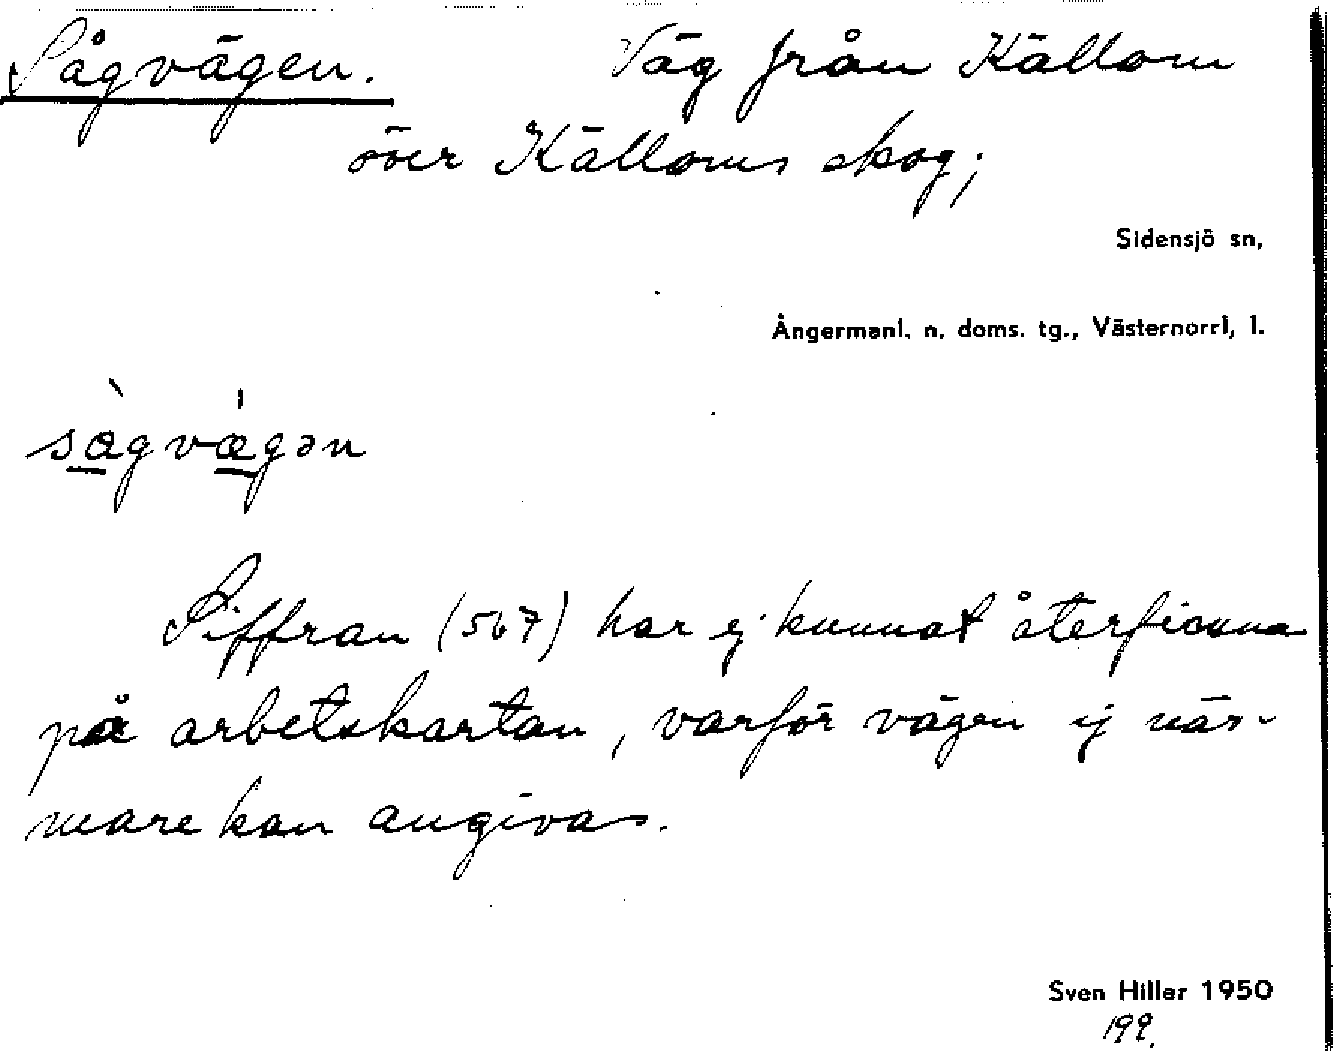 Sågvägen. Väg från Källom
över Källoms skog;
Sidensjö sn,
Ångermanl. n. doms. tg., Västernorrl, l.
sågvægən
Siffran (567) har ej kunnat återfinna
på arbetskartan, varför vägen ej när-
mare kan angivas.
Sven Hiller 1950
199.